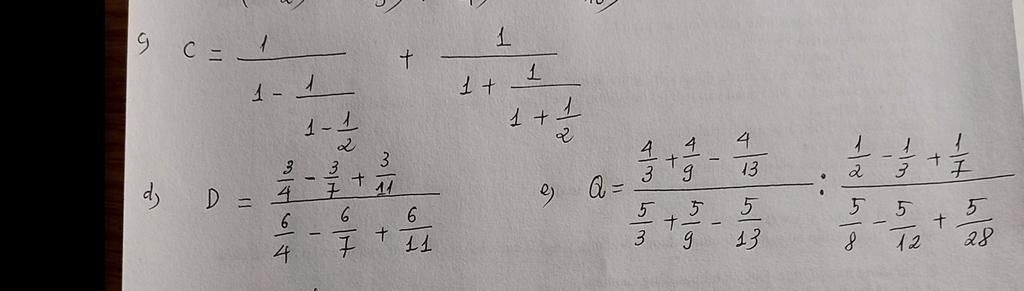 c) C = 1/(1 - 1/(1 - 1/2)) + 1/(1 + 1/(1 + 1/2))
d) D = (3/4 - 3/7 + 3/11)/(6/4 - 6/7 + 6/11)
e) Q = (4/3 + 4/9 - 4/13)/(5/3 + 5/9 - 5/13) : (1/2 - 1/3 + 1/7)/(5/8 - 5/12 + 5/28)